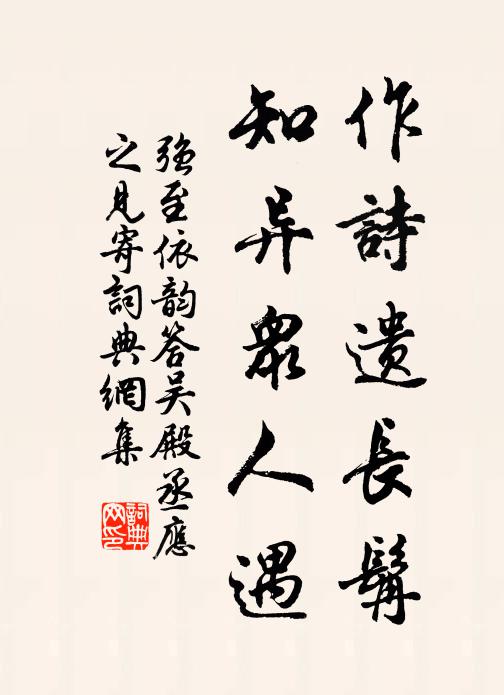 作詩遺長髯
知异眾人遇
強至依韵答吴殿丞應
之見寄詞典網集
詞典
网印